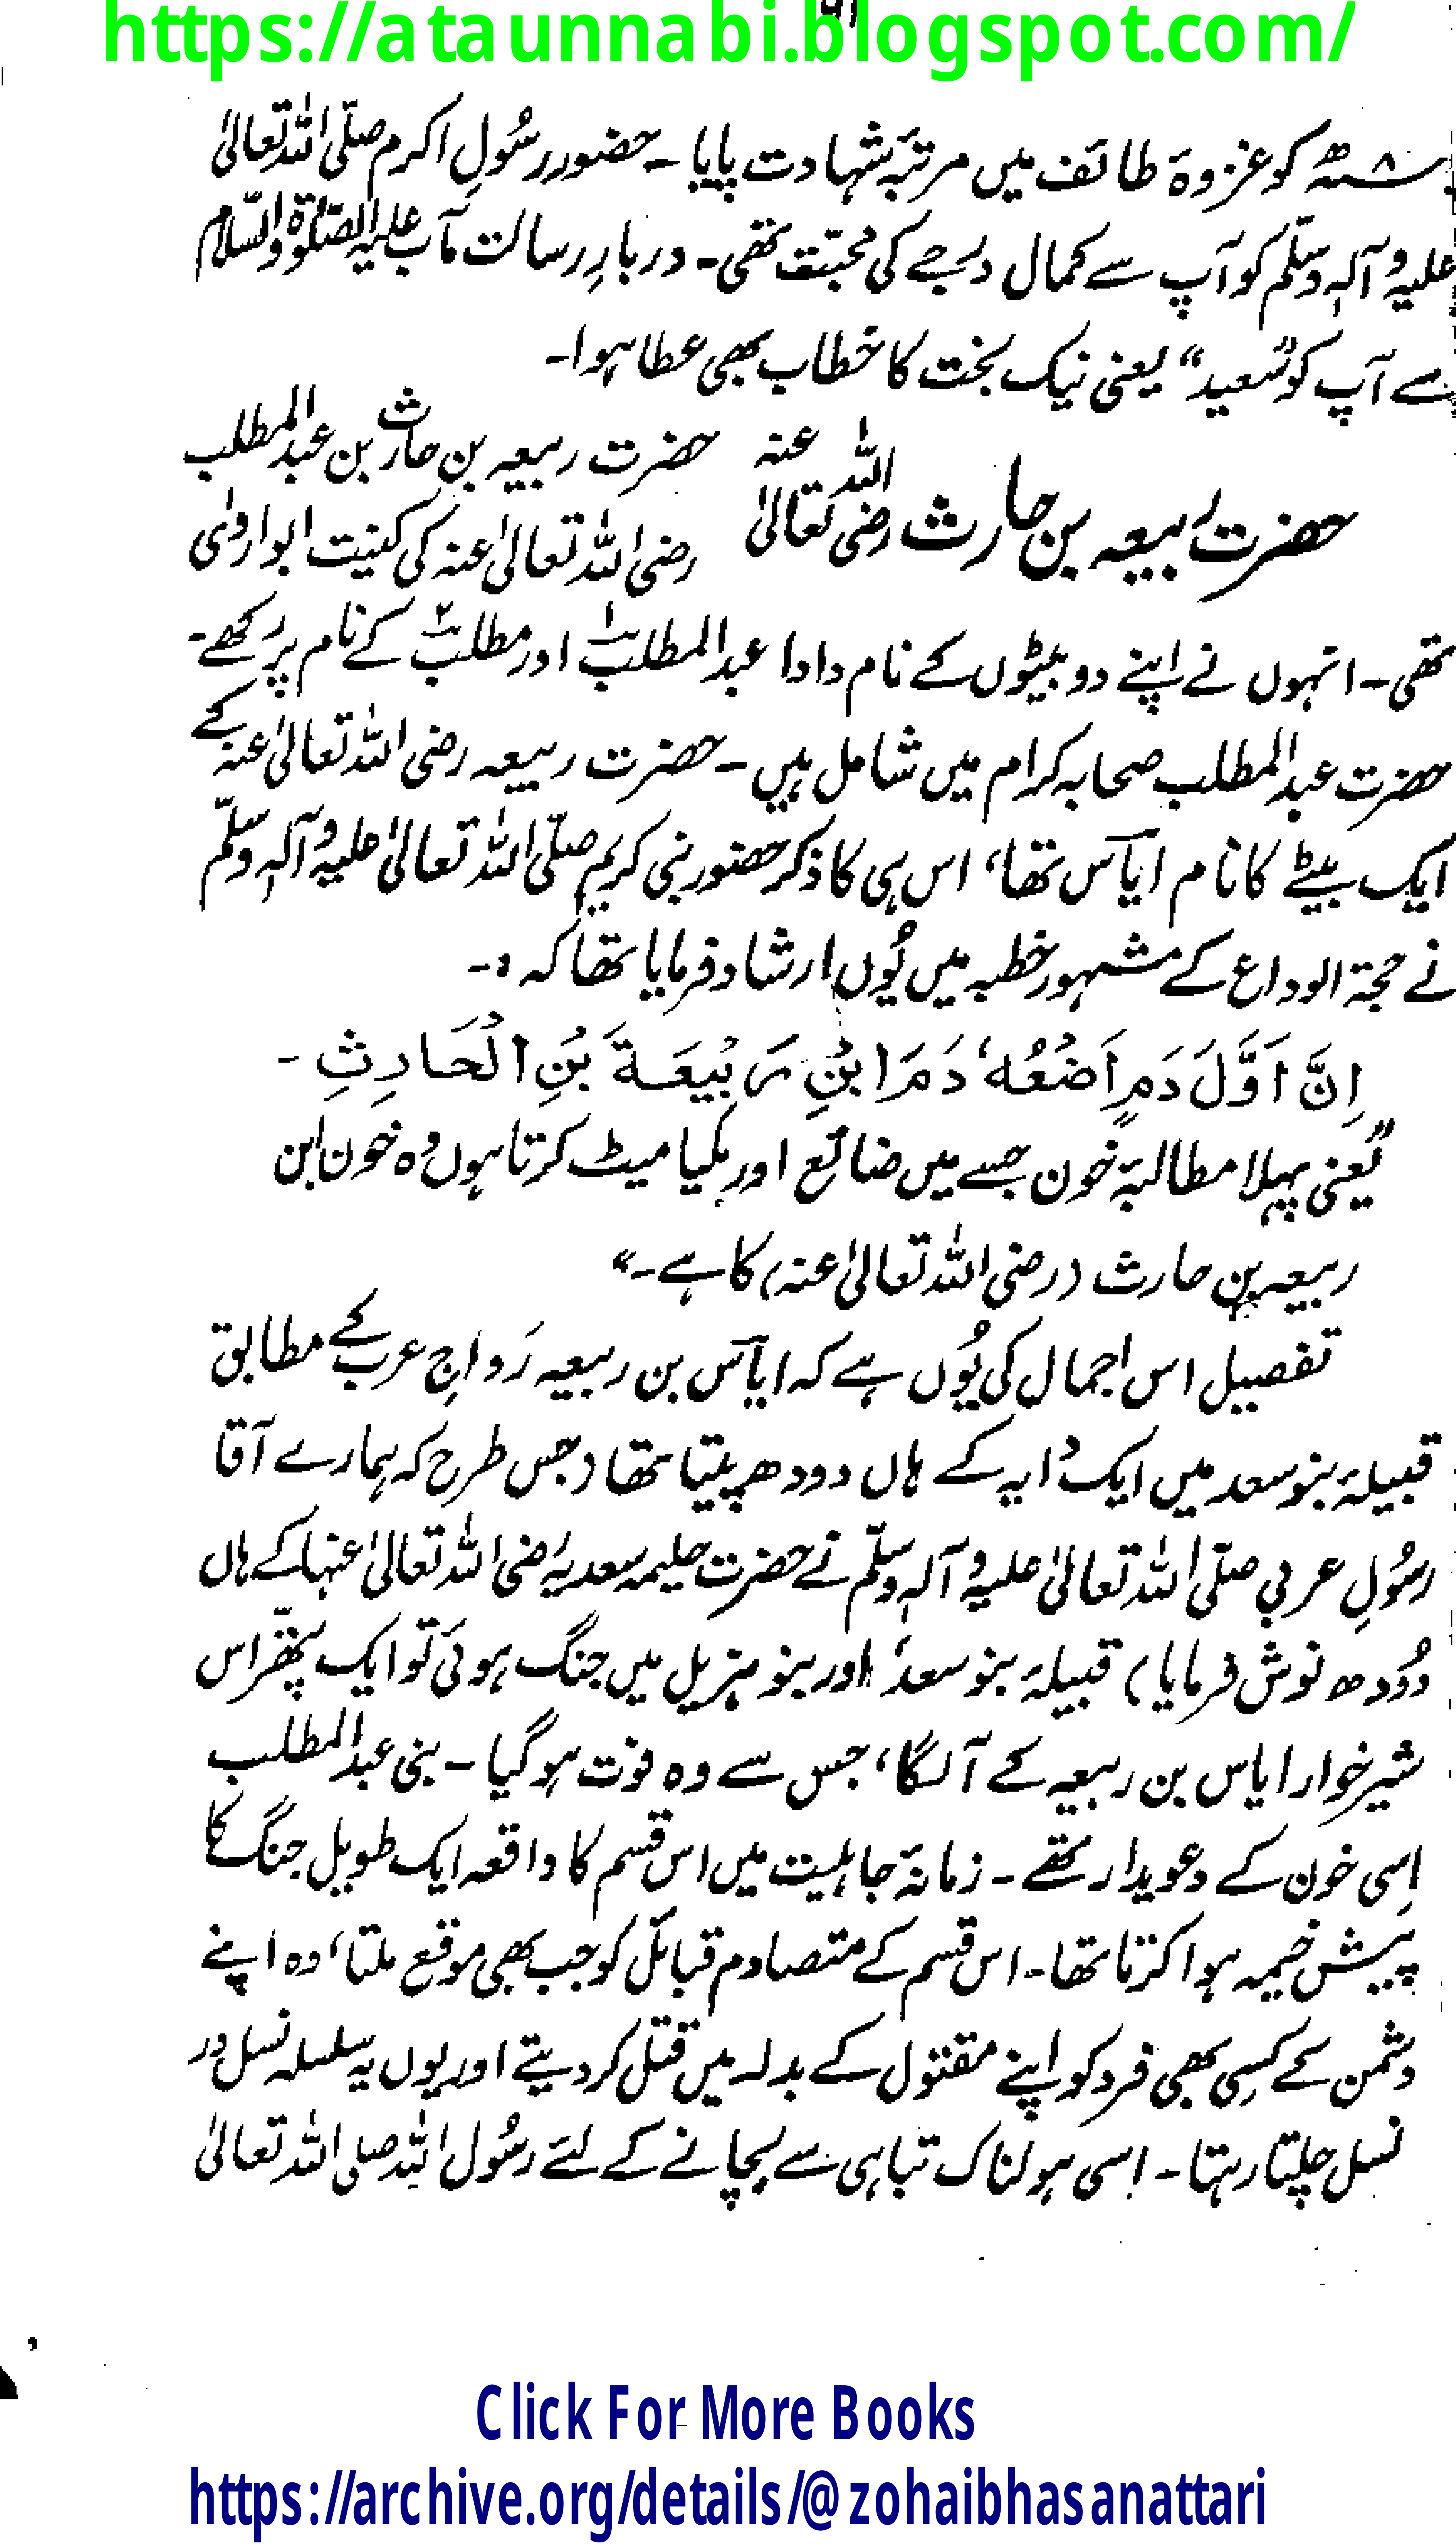 https://ataunnabi.blogspot.com/
۸ھ کو غزوۂ طائف میں مرتبۂ شہادت پایا۔ حضور رسُولِ اکرم صلّی اللہ تعالیٰ
علیہ وآلہٖ وسلّم کو آپ سے کمال درجے کی محبّت تھی۔ دربارِ رسالت مآب علیہ الصّلوٰۃ والسّلام
سے آپ کو "سعید" یعنی نیک بخت کا خطاب بھی عطا ہوا۔
حضرت ربیعہ بن حارث رضی اللہ تعالیٰ عنہ
حضرت ربیعہ بن حارث بن عبدالمطلب
رضی اللہ تعالیٰ عنہ کی کنیت ابو اروٰی
تھی۔ انہوں نے اپنے دو بیٹوں کے نام دادا عبدالمطلب۱ اور مطلب۲ کے نام پر رکھے۔
حضرت عبدالمطلب صحابہ کرام میں شامل ہیں۔ حضرت ربیعہ رضی اللہ تعالیٰ عنہ کے
ایک بیٹے کا نام ایاس تھا، اس ہی کا ذکر حضور نبی کریم صلّی اللہ تعالیٰ علیہ وآلہٖ وسلّم
نے حجۃ الوداع کے مشہور خطبہ میں یُوں ارشاد فرمایا تھا کہ :۔
اِنَّ اَوَّلَ دَمٍ اَضَعُهٗ دَمَ ابْنِ رَبِيْعَةَ بْنِ الْحَارِثِ -
"یعنی پہلا مطالبۂ خون جسے میں ضائع اور ملیا میٹ کرتا ہوں وہ خون ابن
ربیعہ بن حارث (رضی اللہ تعالیٰ عنہ) کا ہے۔"
تفصیل اس اجمال کی یُوں ہے کہ ایاس بن ربیعہ رَواجِ عرب کے مطابق
قبیلۂ بنو سعد میں ایک دایہ کے ہاں دودھ پیتا تھا (جس طرح کہ ہمارے آقا
رسُولِ عربی صلّی اللہ تعالیٰ علیہ وآلہٖ وسلّم نے حضرت حلیمہ سعدیہ رضی اللہ تعالیٰ عنہا کے ہاں
دُودھ نوش فرمایا) قبیلۂ بنو سعد اور بنو ہزیل میں جنگ ہوئی تو ایک پتھّر اس
شیر خوار ایاس بن ربیعہ کے آ لگا، جس سے وہ فوت ہو گیا۔ بنی عبدالمطلب
اِسی خون کے دعویدار تھے۔ زمانۂ جاہلیت میں اس قسم کا واقعہ ایک طویل جنگ کا
پیش خیمہ ہوا کرتا تھا۔ اس قسم کے متصادم قبائل کو جب بھی موقع ملتا، وہ اپنے
دشمن کے کسِی بھی فرد کو اپنے مقتول کے بدلہ میں قتل کر دیتے اور یوں یہ سلسلہ نسل در
نسل چلتا رہتا۔ اسی ہولناک تباہی سے بچانے کے لئے رسُول اللہ صلی اللہ تعالیٰ
Click For More Books
https://archive.org/details/@zohaibhasanattari